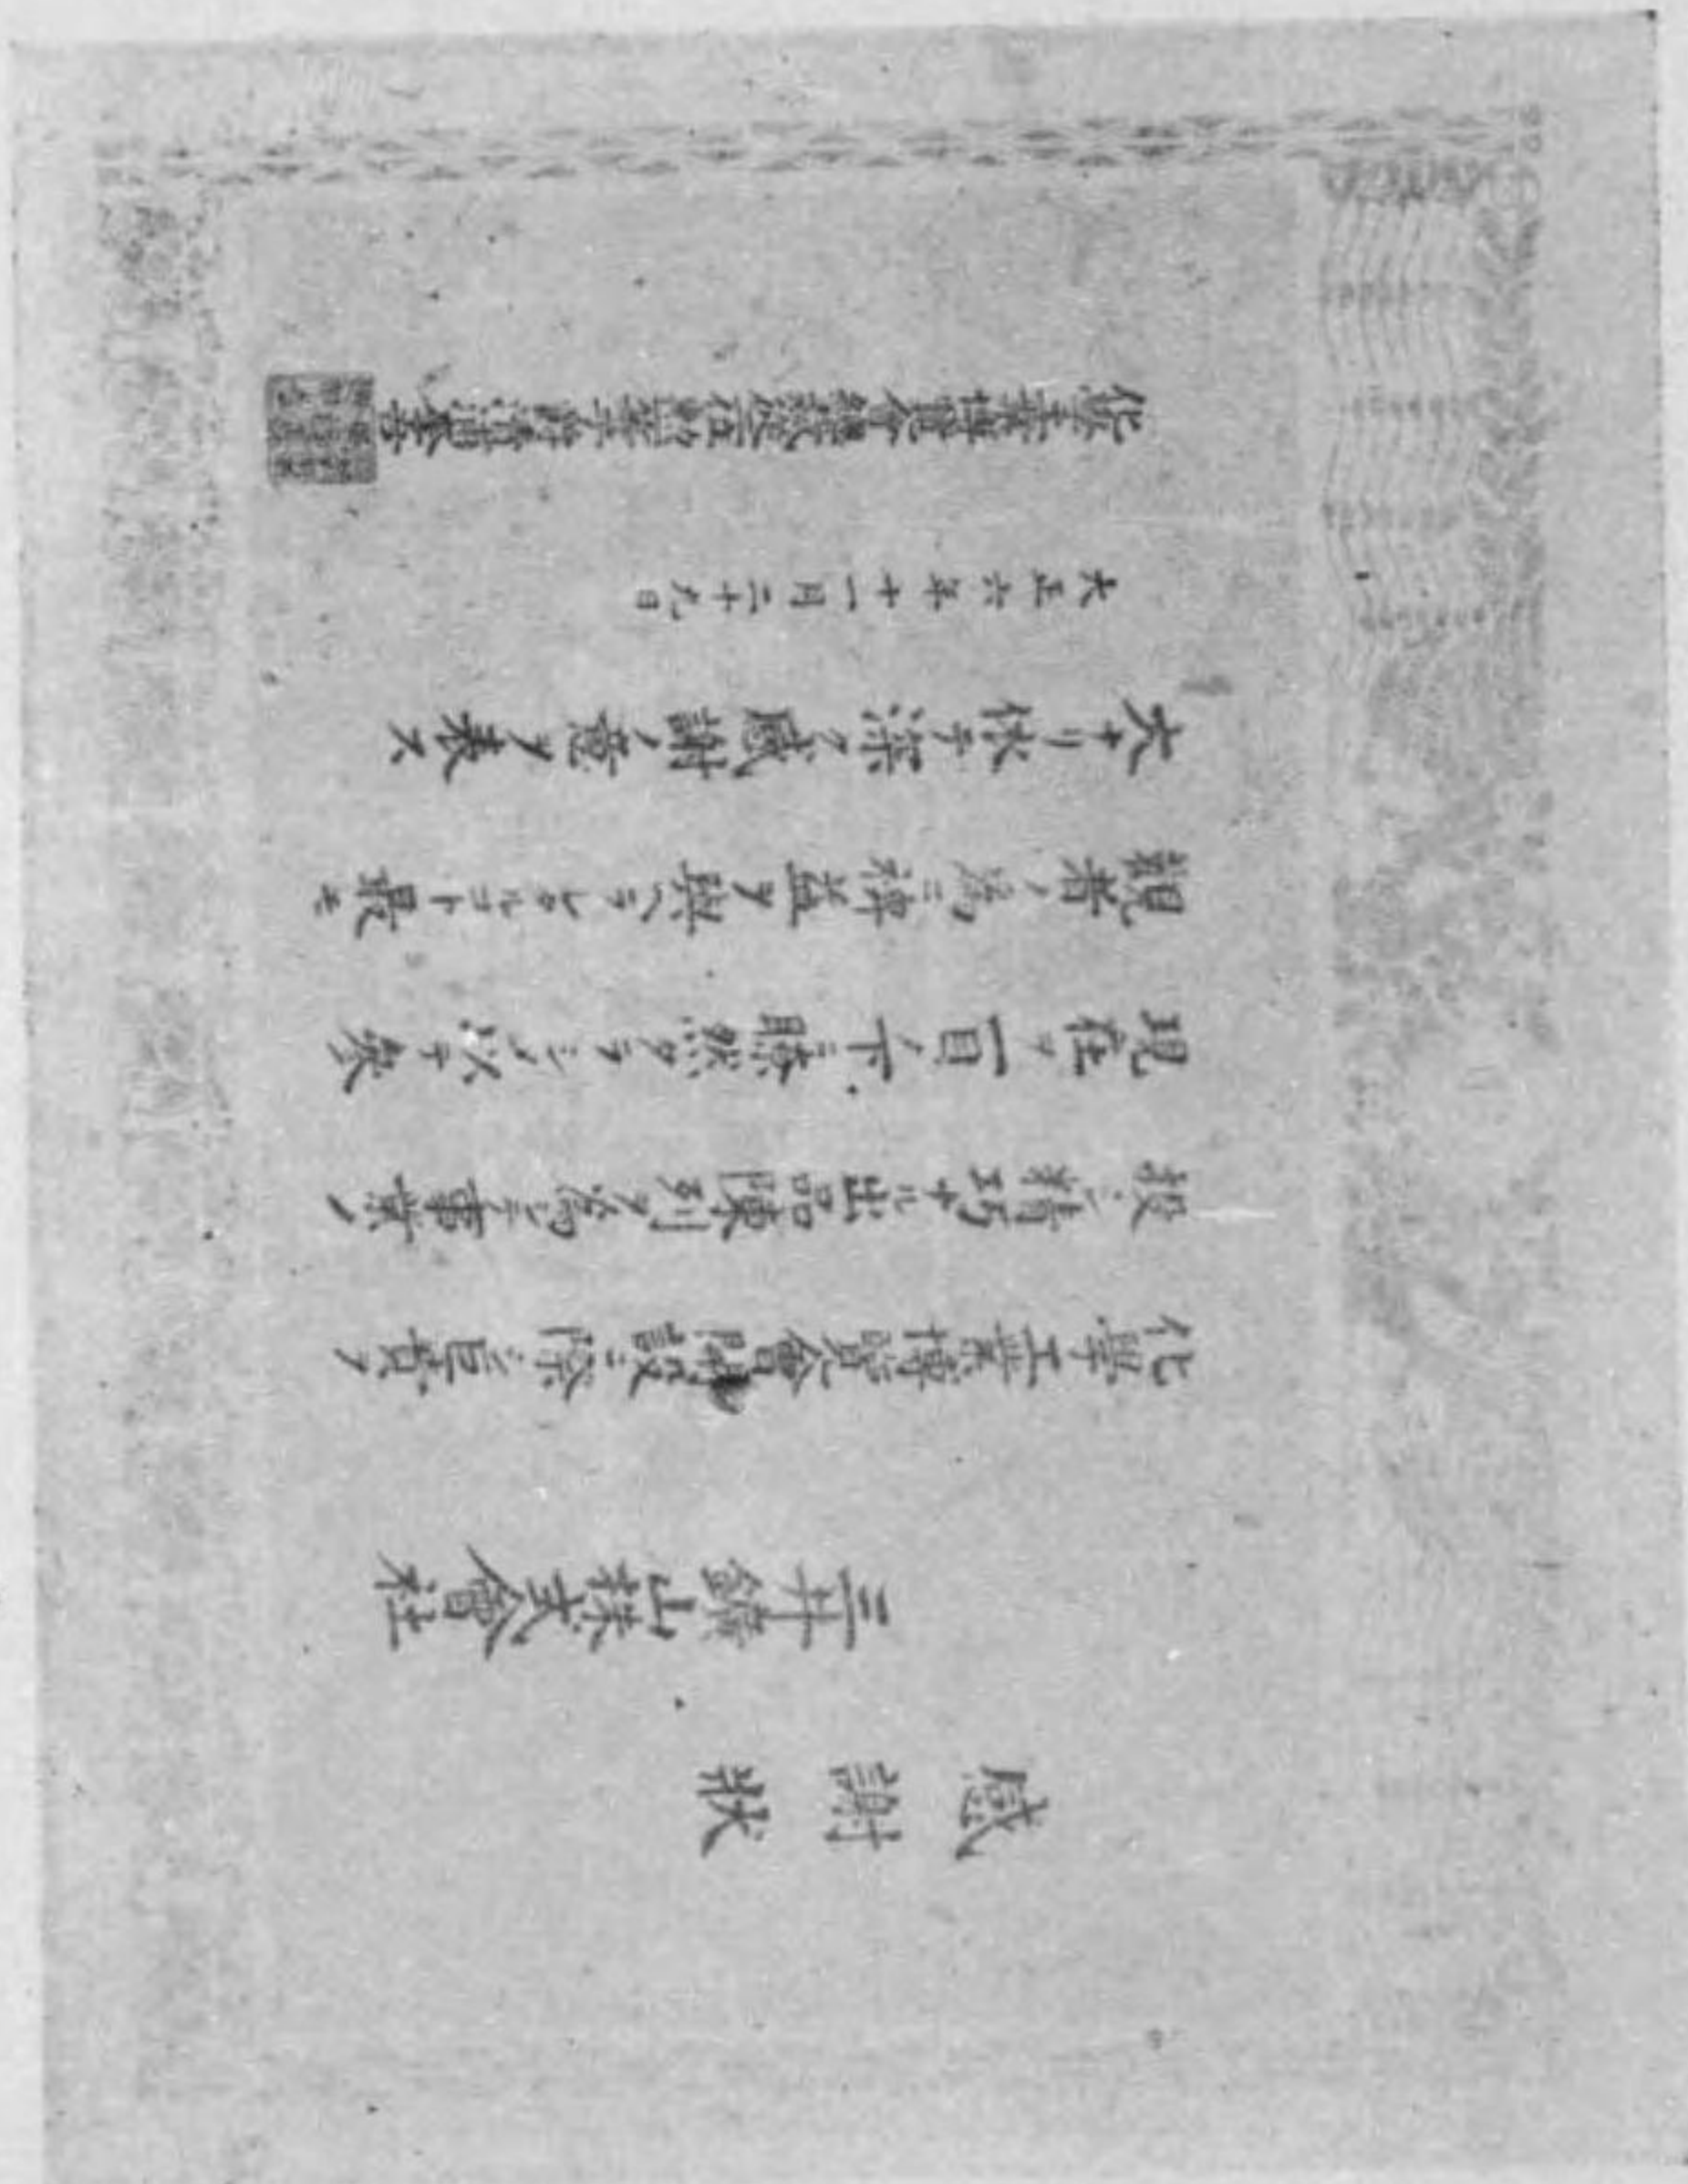 感謝狀
三井鑛山株式會社
化學工業博覽會開設ニ際シ巨費ヲ
投シ精巧ナル出品陳列ヲ為シ事業ノ
現在ヲ一目ノ下ニ瞭然タラシメ以テ参
観者ノ為ニ裨益ヲ與ヘラレタルコト最モ
大ナリ依テ深ク感謝ノ意ヲ表ス
大正六年十一月二十九日
化學工業博覽會總裁從二位勲一等子爵清浦奎吾